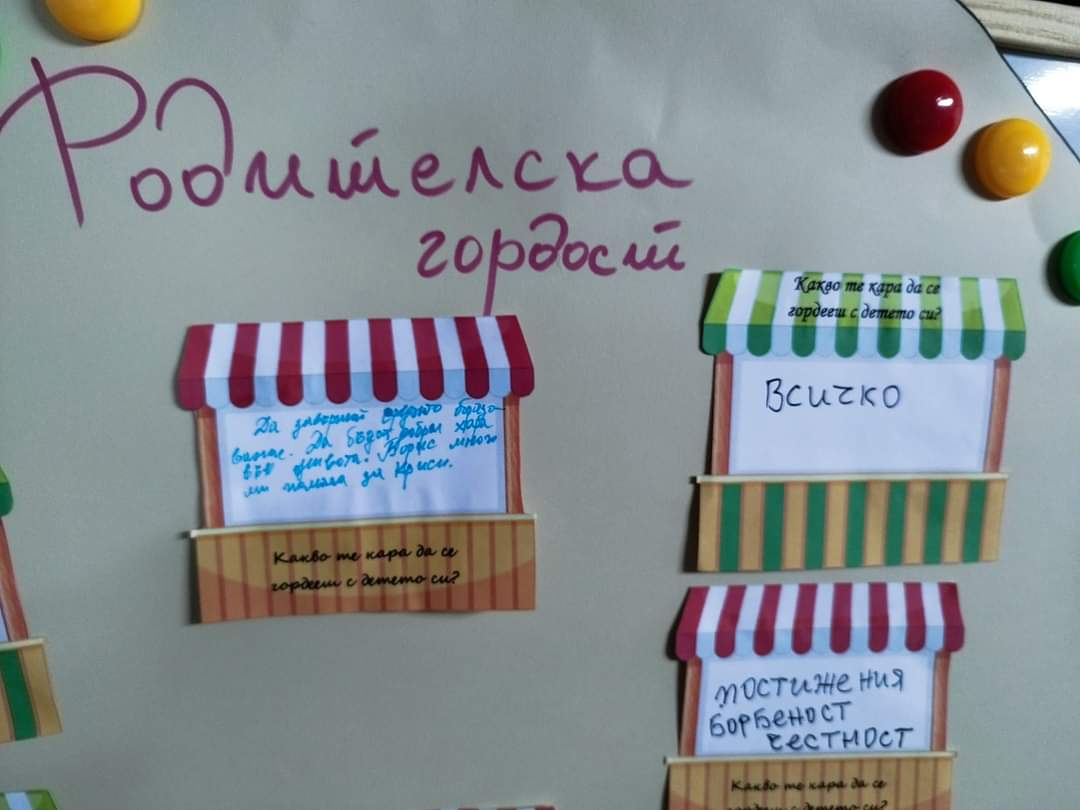 Родителска
гордост
Да завършат средното образо
вание. Да бъдат добри хора
във живота. Борис много
ми помага за Криси.
Какво те кара да се
гордееш с детето си?
Какво те кара да се
гордееш с детето си?
Всичко
постижения
борбеност
честност
Какво те кара да се
гордееш с детето си?